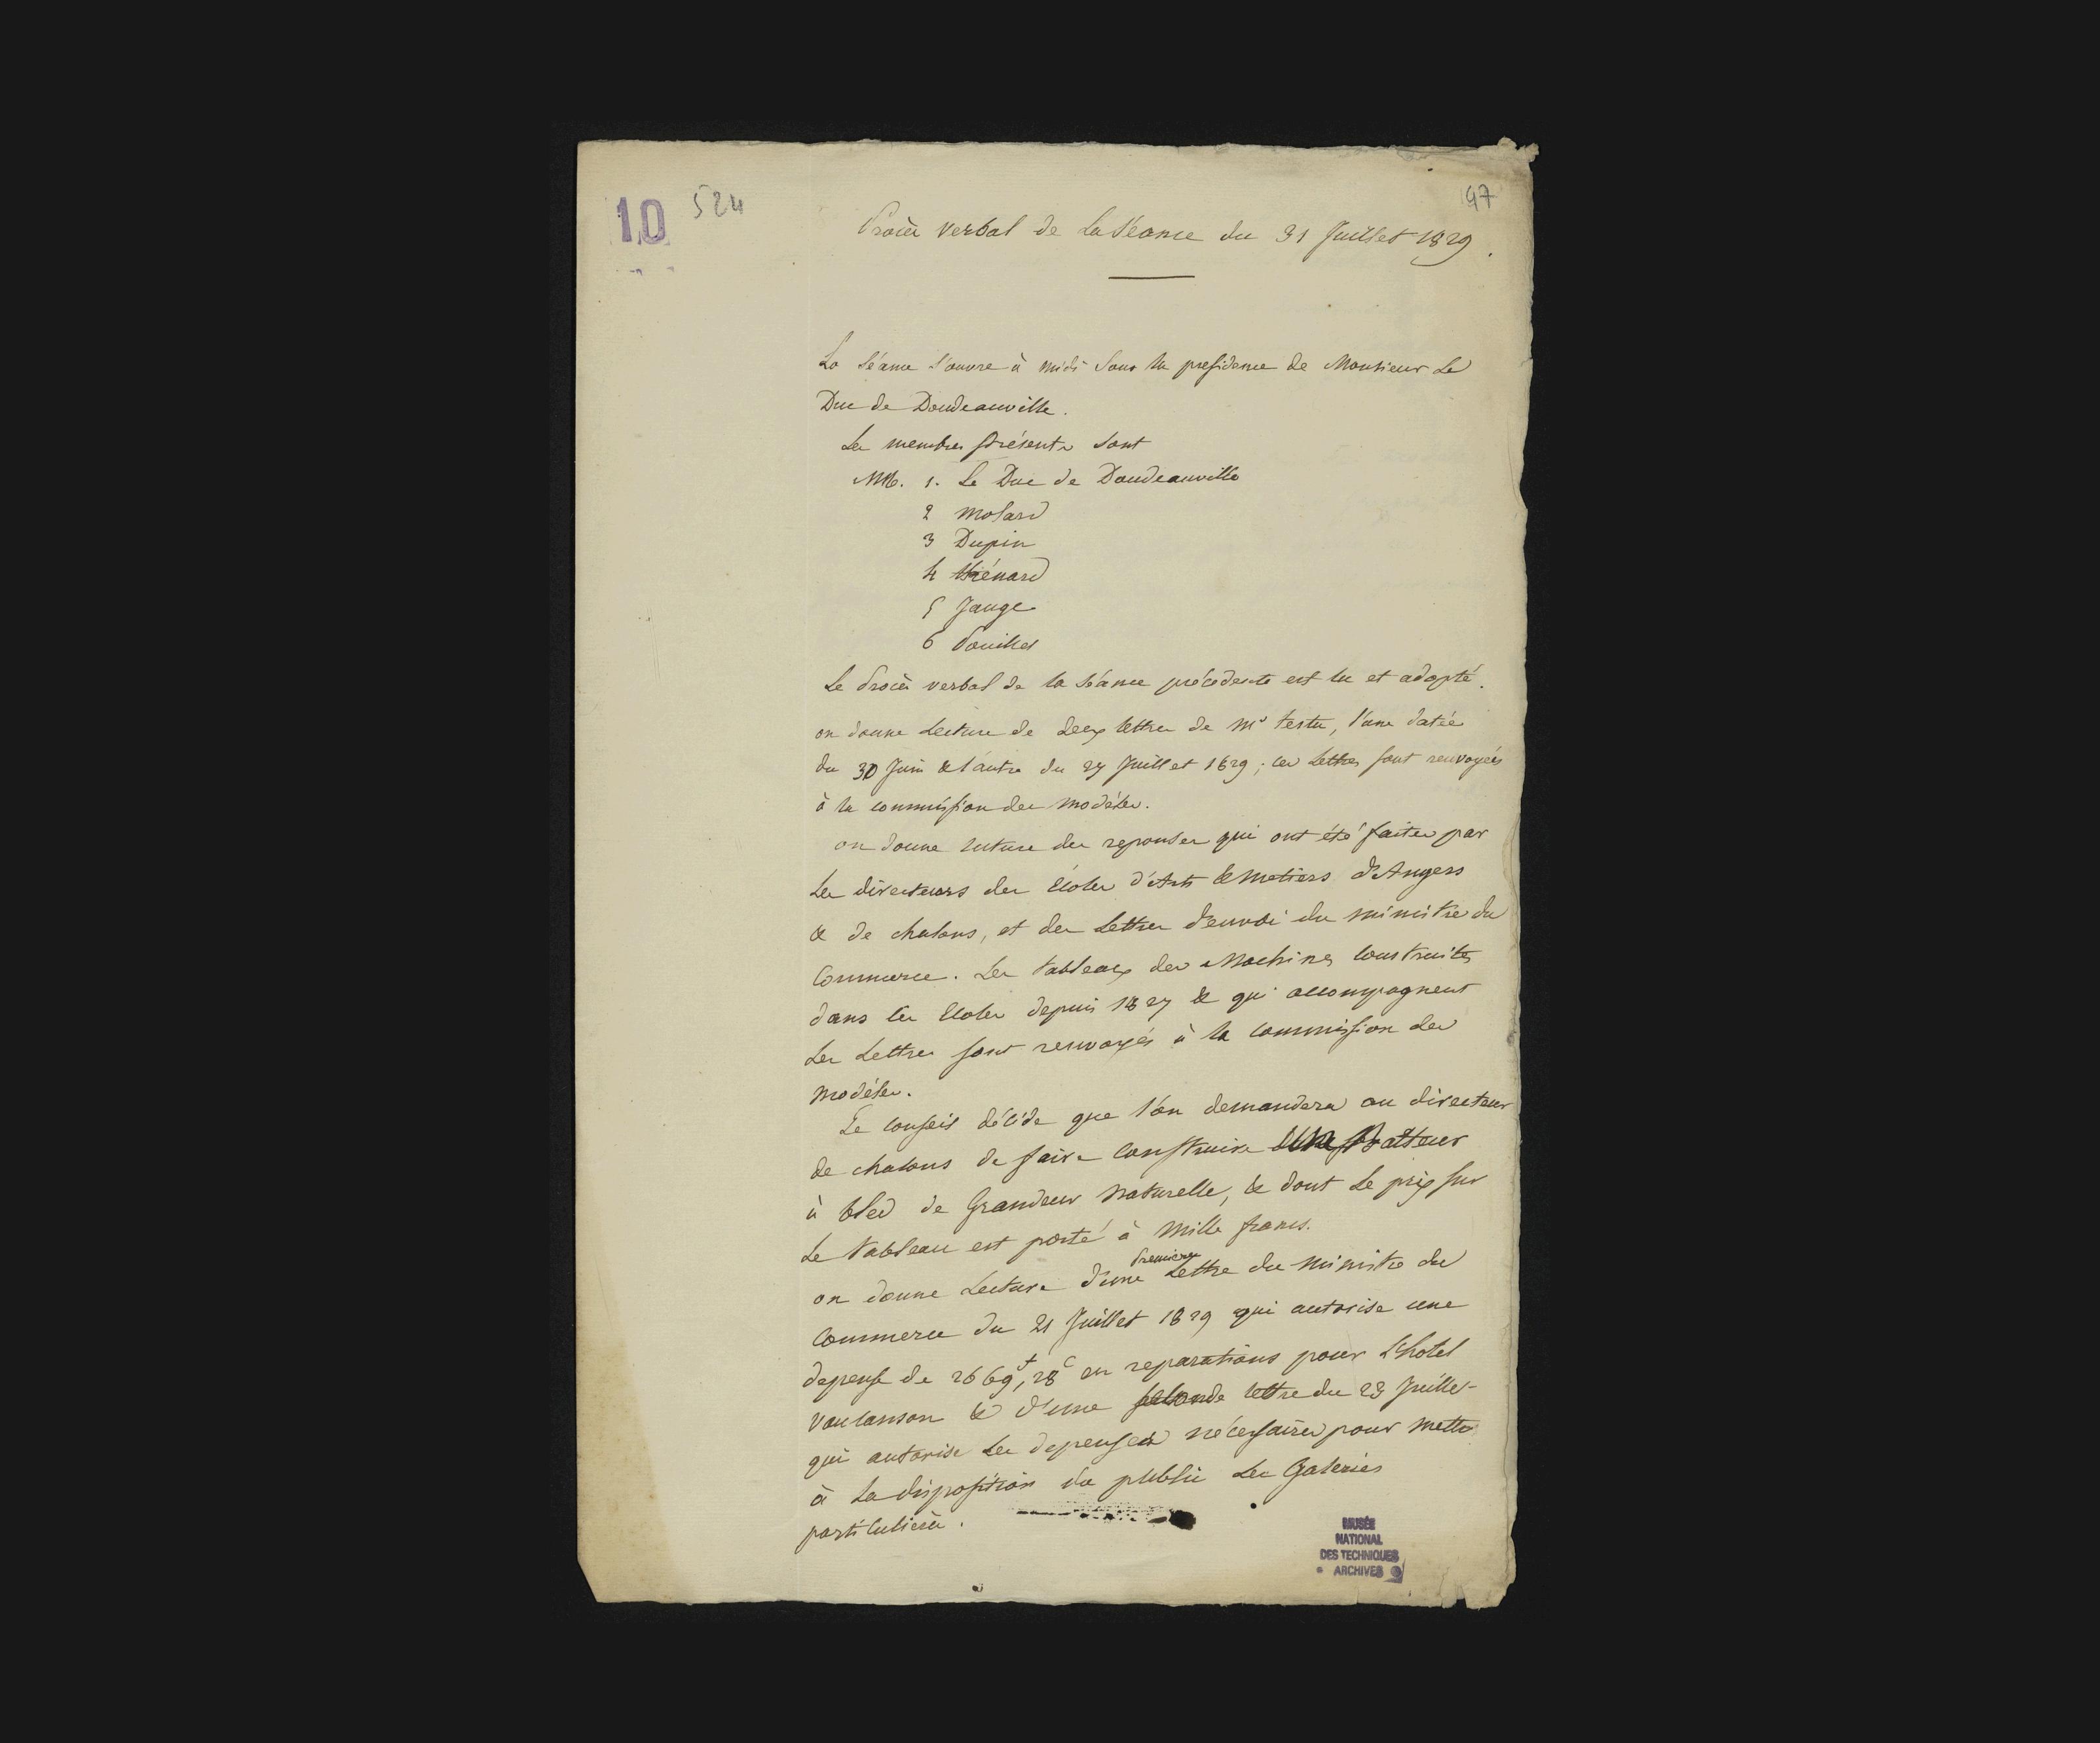 10 524
97
Procès verbal de La Séance du 31 Juillet 1829.
La Séance s'ouvre à midi sous la presidence de Monsieur Le
Duc de Doudeauville.
Les membres présents sont
MM. 1. Le Duc de Doudeauville
2 Molard
3 Dupin
4 thénard
5 Jauge
6 Pouillet
Le Procès verbal de la séance précédente est lu et adopté.
on donne Lecture de deux lettres de Mr testu, l'une datée
du 30 Juin & l'autre du 27 Juillet 1829; ces Lettres sont renvoyées
à la commission des modèles.
on donne lecture des reponses qui ont été faites par
Les directeurs des Écoles d'Arts & Metiers d'Angers
& de chalons, et des Lettres d'envoi du ministre du
Commerce. Les tableaux des Machines construites
dans les Ecoles depuis 1827 & qui accompagnent
Les Lettres sont renvoyés à la commission des
modèles.
Le conseil décide que l'on demandera au directeur
de chalons de faire construire batteur
à bled de Grandeur Naturelle, & dont Le prix sur
Le tableau est porté à Mille francs.
on donne Lecture d'une premiere Lettre du ministre du
Commerce du 21 Juillet 1829 qui autorise une
depense de 2669f,28c en reparations pour L'hotel
Vaucanson & d'une seconde lettre du 23 Juillet
qui autorise Les depenses nécessaires pour mettre
à La disposition du public Les Galeries
particulières.
MUSÉE
NATIONAL
DES TECHNIQUES
ARCHIVES